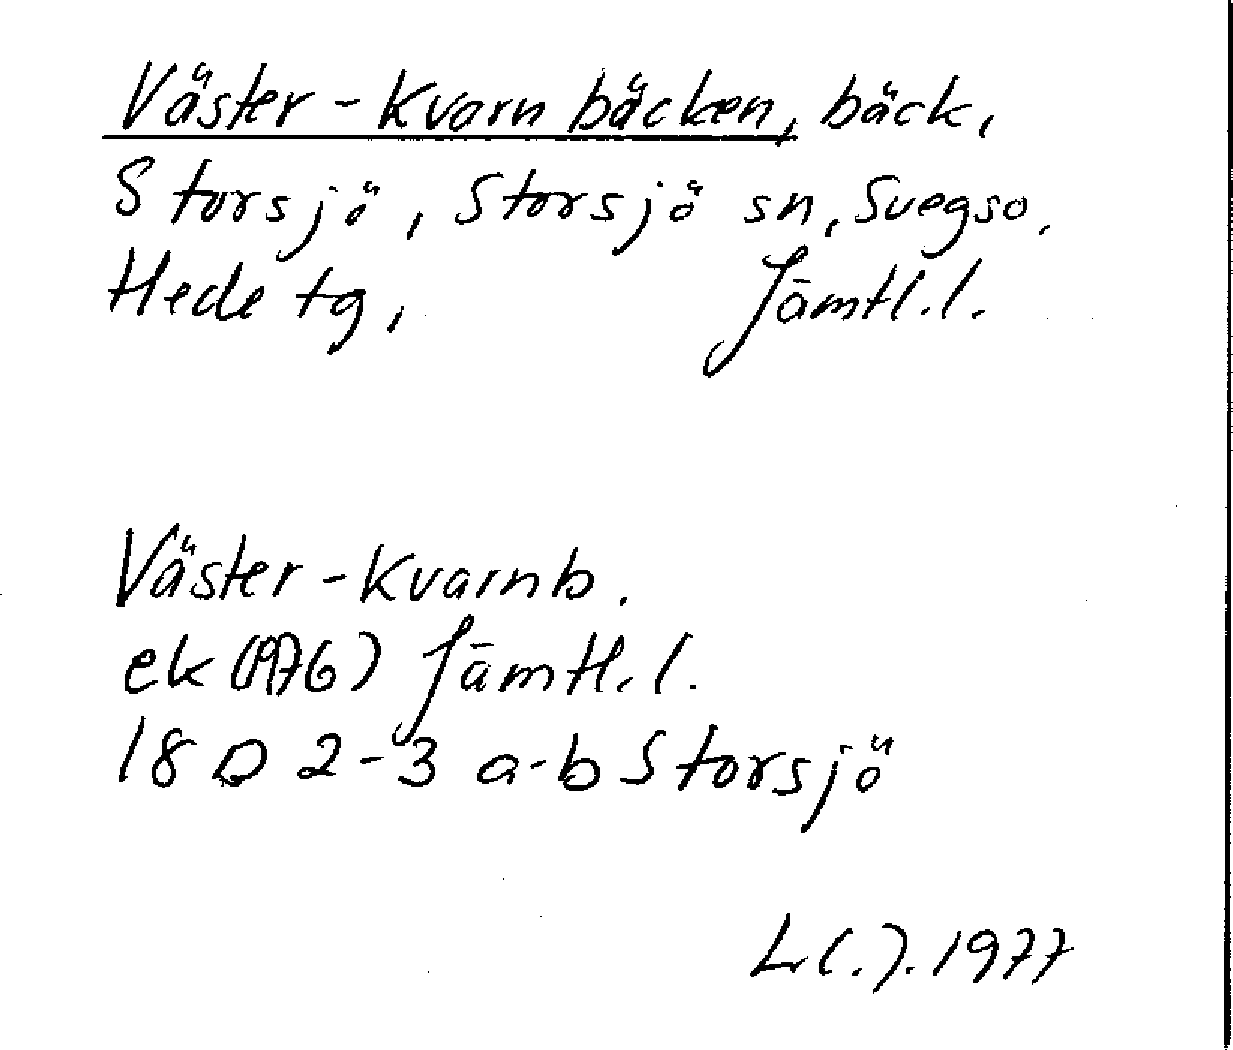 Väster-Kvarnbäcken, bäck,
Storsjö, Storsjö sn, Svegso.
Hede tg, Jämtl.l.
Väster-Kvarnb.
ek (1976) Jämtl.l.
18 D 2-3 a-b Storsjö
L(.).1977